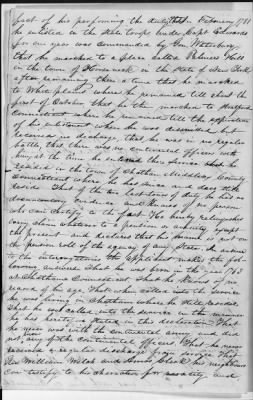 first of his performing the duty that in February 1781
he enlisted in the State troops under Capt Edwards
for one year was commanded by Gen Waterbury
that he marched to a place called Palmers Hill
in the town of in the State of New York
after remaining there a time that he marched
to White plains where he remained till about the
first of October that he then marched to Stafford
Connecticut where he remained till the expiration
of his enlistment when he was dismissed but
received no discharge, that he was in no regular
battle, that there was no continental officers with
him, at the time he entered there service that he
resided in the town of Chatham Middlesex County
Connecticut where he has since and does still
reside that of the two last tours of duty he has no
documentary evidence and knows of no person
who can testify to the fact. He hereby relinquishes
every claim whatever to a pension or annuity except
the present and declares that his name is not on
the pension roll of the agency of any State. In answer
to the interrogatories the applicant makes the fol-
lowing answers that he was born in the year 1763
at Chatham Connecticut that he knows of no
record of his age That when called into the service
he was living in Chatham where he still resides
that he was called into the service in the manner
he has herein stated in this declaration That
he never was with the continental army and did
not, any of the continental officers. That he never
received a regular discharge from service that
William Welch and Amos neighbors
can testify to his character for veracity and